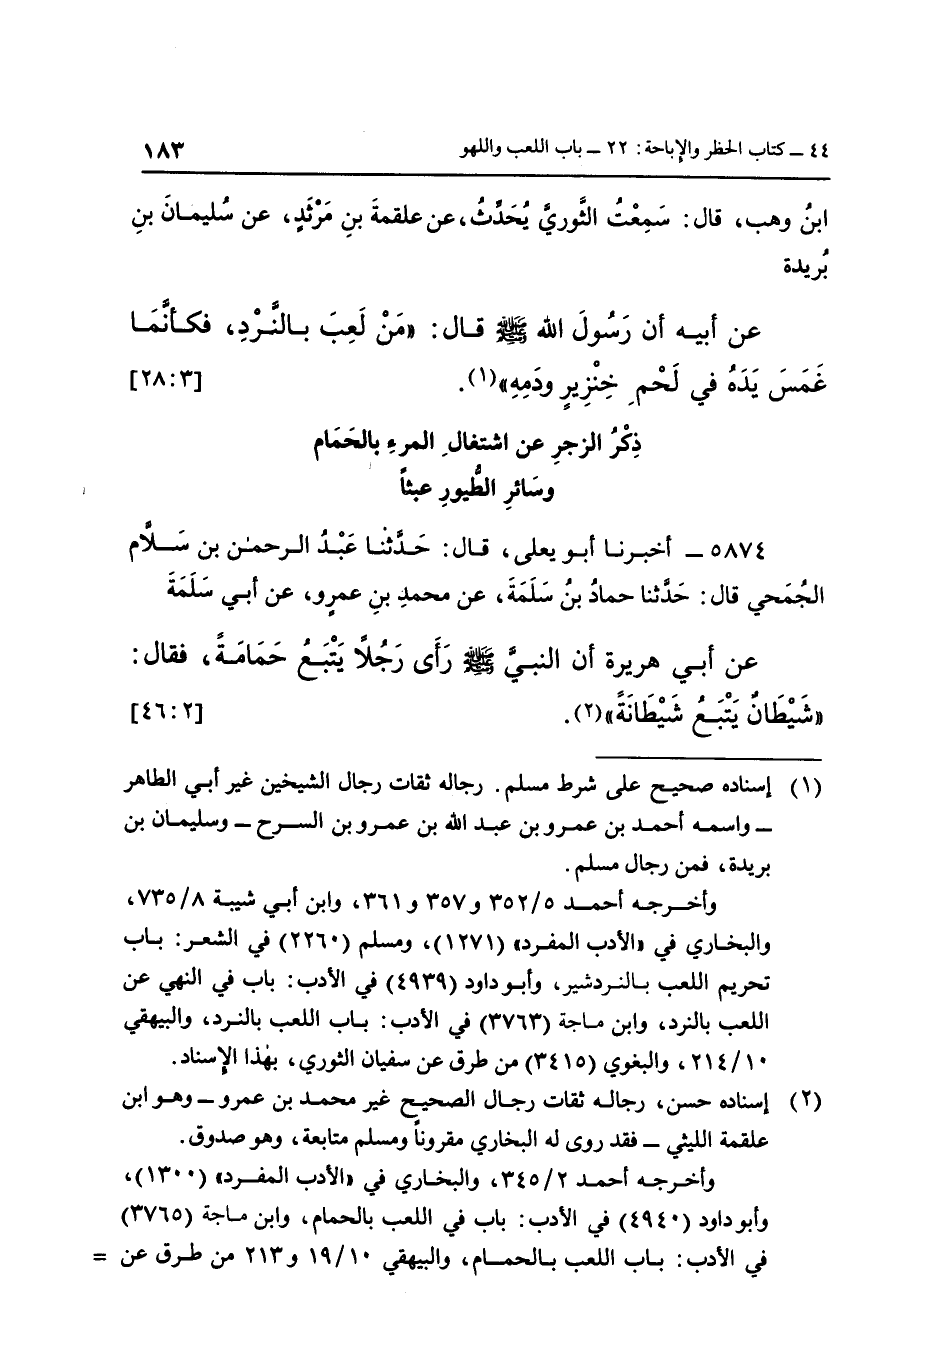 ٤٤ ــ كتاب الحظر والإباحة: ٢٢ ــ باب اللعب واللهو ١٨٣
ابنُ وهب، قال: سَمِعْتُ الثَّوريَّ يُحَدِّثُ، عن علقمةَ بنِ مَرْثَدٍ، عن سُليمانَ بنِ
بُريدة
عن أبيه أن رَسُولَ الله ﷺ قال: «مَنْ لَعِبَ بالنَّرْدِ، فكأنَّمَا
غَمَسَ يَدَهُ في لَحْمِ خِنْزِيرٍ ودَمِهِ»(١). [٢٨:٣]
ذِكْرُ الزجرِ عن اشتغالِ المرءِ بالحَمَام
وسَائرِ الطُّيورِ عبثاً
٥٨٧٤ ــ أخبرنا أبو يعلى، قال: حَدَّثنا عَبْدُ الرحمٰن بن سَلَّام
الجُمَحي قال: حَدَّثنا حمادُ بنُ سَلَمَةَ، عن محمدِ بنِ عمرٍو، عن أبي سَلَمَةَ
عن أبي هريرة أن النبيَّ ﷺ رَأَى رَجُلًا يَتْبَعُ حَمَامَةً، فقال:
«شَيْطَانٌ يَتْبَعُ شَيْطَانَةً»(٢). [٤٦:٢]
(١) إسناده صحيح على شرط مسلم. رجاله ثقات رجال الشيخين غير أبي الطاهر
ــ واسمه أحمد بن عمرو بن عبد الله بن عمرو بن السرح ــ وسليمان بن
بريدة، فمن رجال مسلم.
وأخرجه أحمد ٣٥٢/٥ و ٣٥٧ و ٣٦١، وابن أبي شيبة ٧٣٥/٨،
والبخاري في «الأدب المفرد» (١٢٧١)، ومسلم (٢٢٦٠) في الشعر: باب
تحريم اللعب بالنردشير، وأبو داود (٤٩٣٩) في الأدب: باب في النهي عن
اللعب بالنرد، وابن ماجة (٣٧٦٣) في الأدب: باب اللعب بالنرد، والبيهقي
٢١٤/١٠، والبغوي (٣٤١٥) من طرق عن سفيان الثوري، بهٰذا الإسناد.
(٢) إسناده حسن، رجاله ثقات رجال الصحيح غير محمد بن عمرو ــ وهو ابن
علقمة الليثي ــ فقد روى له البخاري مقروناً ومسلم متابعة، وهو صدوق.
وأخرجه أحمد ٣٤٥/٢، والبخاري في «الأدب المفرد» (١٣٠٠)،
وأبو داود (٤٩٤٠) في الأدب: باب في اللعب بالحمام، وابن ماجة (٣٧٦٥)
في الأدب: باب اللعب بالحمام، والبيهقي ١٩/١٠ و ٢١٣ من طرق عن =